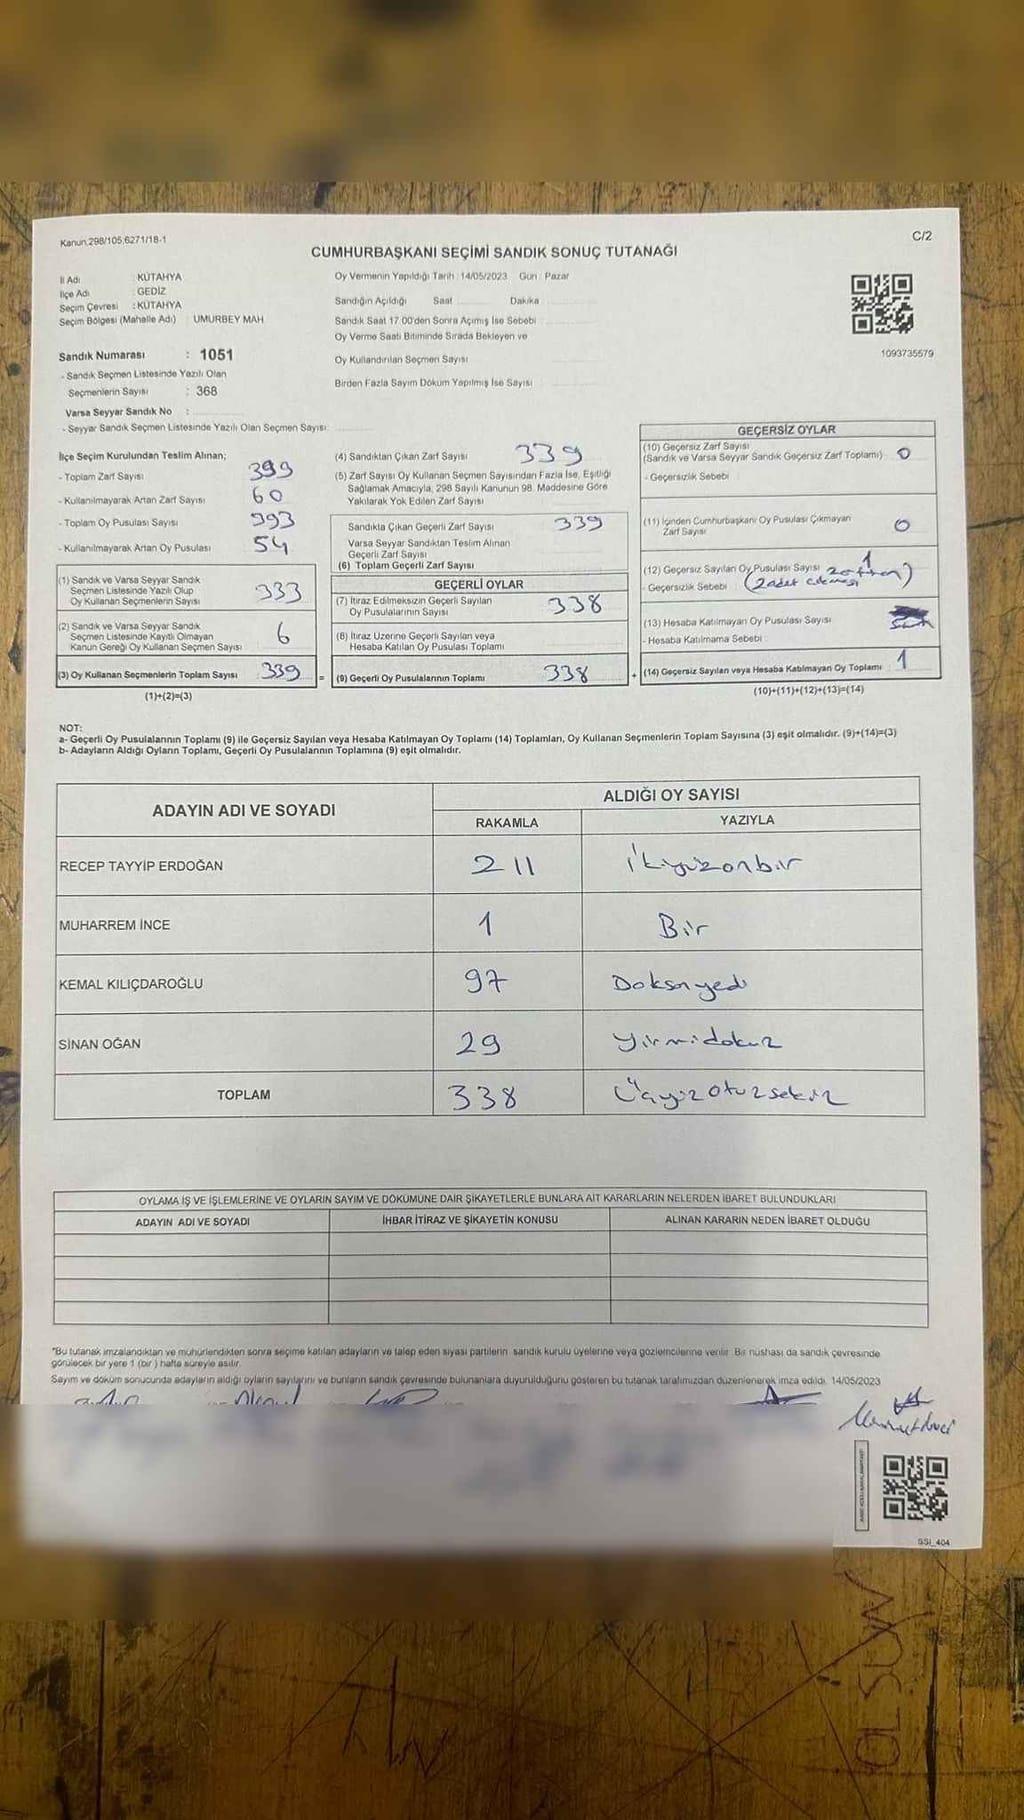 Kanun,298/105,6271/18-1
C/2
CUMHURBAŞKANI SEÇİMİ SANDIK SONUÇ TUTANAĞI
İl Adı : KÜTAHYA
İlçe Adı : GEDİZ
Seçim Çevresi : KÜTAHYA
Seçim Bölgesi (Mahalle Adı) UMURBEY MAH
Sandık Numarası : 1051
- Sandık Seçmen Listesinde Yazılı Olan
Seçmenlerin Sayısı : 368
Varsa Seyyar Sandık No :
- Seyyar Sandık Seçmen Listesinde Yazılı Olan Seçmen Sayısı:
Oy Vermenin Yapıldığı Tarih : 14/05/2023 Gün : Pazar
Sandığın Açıldığı Saat Dakika
Sandık Saat 17.00'den Sonra Açımış İse Sebebi
Oy Verme Saati Bitiminde Sırada Bekleyen ve
Oy Kullandırılan Seçmen Sayısı
Birden Fazla Sayım Döküm Yapılmış İse Sayısı
1093735579
İlçe Seçim Kurulundan Teslim Alınan;
- Toplam Zarf Sayısı 399
- Kullanılmayarak Artan Zarf Sayısı 60
- Toplam Oy Pusulası Sayısı 393
- Kullanılmayarak Artan Oy Pusulası 54
(1) Sandık ve Varsa Seyyar Sandık
Seçmen Listesinde Yazılı Olup
Oy Kullanan Seçmenlerin Sayısı 333
(2) Sandık ve Varsa Seyyar Sandık
Seçmen Listesinde Kayıtlı Olmayan
Kanun Gereği Oy Kullanan Seçmen Sayısı 6
(3) Oy Kullanan Seçmenlerin Toplam Sayısı 339 =
(1)+(2)=(3)
(4) Sandıktan Çıkan Zarf Sayısı 339
(5) Zarf Sayısı Oy Kullanan Seçmen Sayısından Fazla İse, Eşitliği
Sağlamak Amacıyla, 298 Sayılı Kanunun 98. Maddesine Göre
Yakılarak Yok Edilen Zarf Sayısı
Sandıkta Çıkan Geçerli Zarf Sayısı 339
Varsa Seyyar Sandıktan Teslim Alınan
Geçerli Zarf Sayısı
(6) Toplam Geçerli Zarf Sayısı
GEÇERLİ OYLAR
(7) İtiraz Edilmeksizin Geçerli Sayılan
Oy Pusulalarının Sayısı 338
(8) İtiraz Üzerine Geçerli Sayılan veya
Hesaba Katılan Oy Pusulası Toplamı
(9) Geçerli Oy Pusulalarının Toplamı 338 +
GEÇERSİZ OYLAR
(10) Geçersiz Zarf Sayısı
(Sandık ve Varsa Seyyar Sandık Geçersiz Zarf Toplamı) 0
- Geçersizlik Sebebi
(11) İçinden Cumhurbaşkanı Oy Pusulası Çıkmayan
Zarf Sayısı 0
(12) Geçersiz Sayılan Oy Pusulası Sayısı 1
- Geçersizlik Sebebi (2 adet
(13) Hesaba Katılmayan Oy Pusulası Sayısı
- Hesaba Katılmama Sebebi
(14) Geçersiz Sayılan veya Hesaba Katılmayan Oy Toplamı 1
(10)+(11)+(12)+(13)=(14)
NOT:
a- Geçerli Oy Pusulalarının Toplamı (9) ile Geçersiz Sayılan veya Hesaba Katılmayan Oy Toplamı (14) Toplamları, Oy Kullanan Seçmenlerin Toplam Sayısına (3) eşit olmalıdır. (9)+(14)=(3)
b- Adayların Aldığı Oyların Toplamı, Geçerli Oy Pusulalarının Toplamına (9) eşit olmalıdır.
ADAYIN ADI VE SOYADI
ALDIĞI OY SAYISI
RAKAMLA YAZIYLA
RECEP TAYYİP ERDOĞAN 211 İkiyüzonbir
MUHARREM İNCE 1 Bir
KEMAL KILIÇDAROĞLU 97 Doksanyedi
SİNAN OĞAN 29 Yirmidokuz
TOPLAM 338 Üçyüzotuzsekiz
OYLAMA İŞ VE İŞLEMLERİNE VE OYLARIN SAYIM VE DÖKÜMÜNE DAİR ŞİKAYETLERLE BUNLARA AİT KARARLARIN NELERDEN İBARET BULUNDUKLARI
ADAYIN ADI VE SOYADI İHBAR İTİRAZ VE ŞİKAYETİN KONUSU ALINAN KARARIN NEDEN İBARET OLDUĞU
*Bu tutanak imzalandıktan ve mühürlendikten sonra seçime katılan adayların ve talep eden siyasi partilerin sandık kurulu üyelerine veya gözlemcilerine verilir. Bir nüshası da sandık çevresinde
görülecek bir yere 1 (bir) hafta süreyle asılır.
Sayım ve döküm sonucunda adayların aldığı oyların sayılarını ve bunların sandık çevresinde bulunanlara duyurulduğunu gösteren bu tutanak tarafımızdan düzenlenerek imza edildi. 14/05/2023
SSI_404
OLSUN